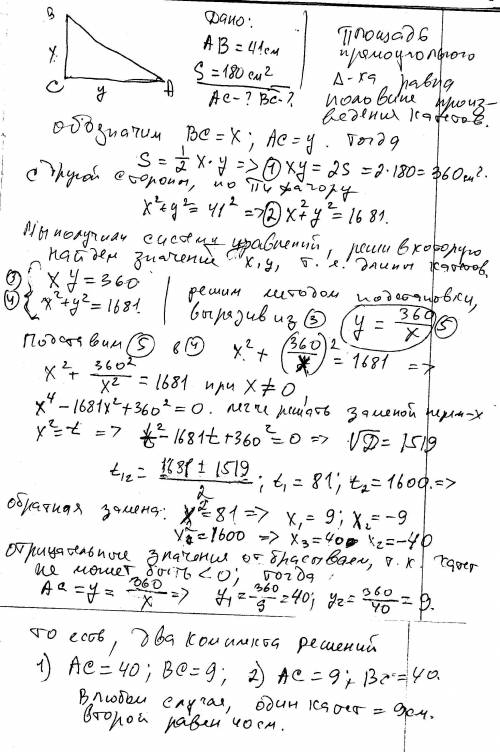 B
Дано:
AB = 41 см
S = 180 см²
AC - ? BC - ?
Площадь
прямоугольного
Δ-ка равна
половине произ-
ведения катетов.
X
C y A
обозначим BC = X ; AC = y . Тогда
S = 1/2 x·y => ① xy = 2S = 2·180 = 360 см².
С другой стороны, по Пифагору
x² + y² = 41² => ② x² + y² = 1681.
Мы получили систему уравнений, решив которую
найдем значение x, y, т. е. длины катетов.
③ { xy = 360
④ { x² + y² = 1681.
решим методом подстановки,
выразив из ③ y = 360/x ⑤
Подставим ⑤ в ④ x² + (360/x)² = 1681 =>
x² + 360²/x² = 1681 при x ≠ 0
x⁴ - 1681x² + 360² = 0. легче решать заменой перем-х
x² = t => t² - 1681t + 360² = 0 => √D = 1519
t₁₂ = (1681 ± 1519)/2 ; t₁ = 81; t₂ = 1600. =>
обратная замена: x² = 81 => x₁ = 9; x₂ = -9
x² = 1600 => x₃ = 40 x₂ = -40
отрицательные значения отбрасываем, т. к. катет
не может быть < 0; тогда
AC = y = 360/x => y₁ = 360/9 = 40; y₂ = 360/40 = 9.
то есть, два комплекта решений
1) AC = 40; BC = 9; 2) AC = 9; BC = 40.
В любом случае, один катет = 9 см.
второй равен 40 см.